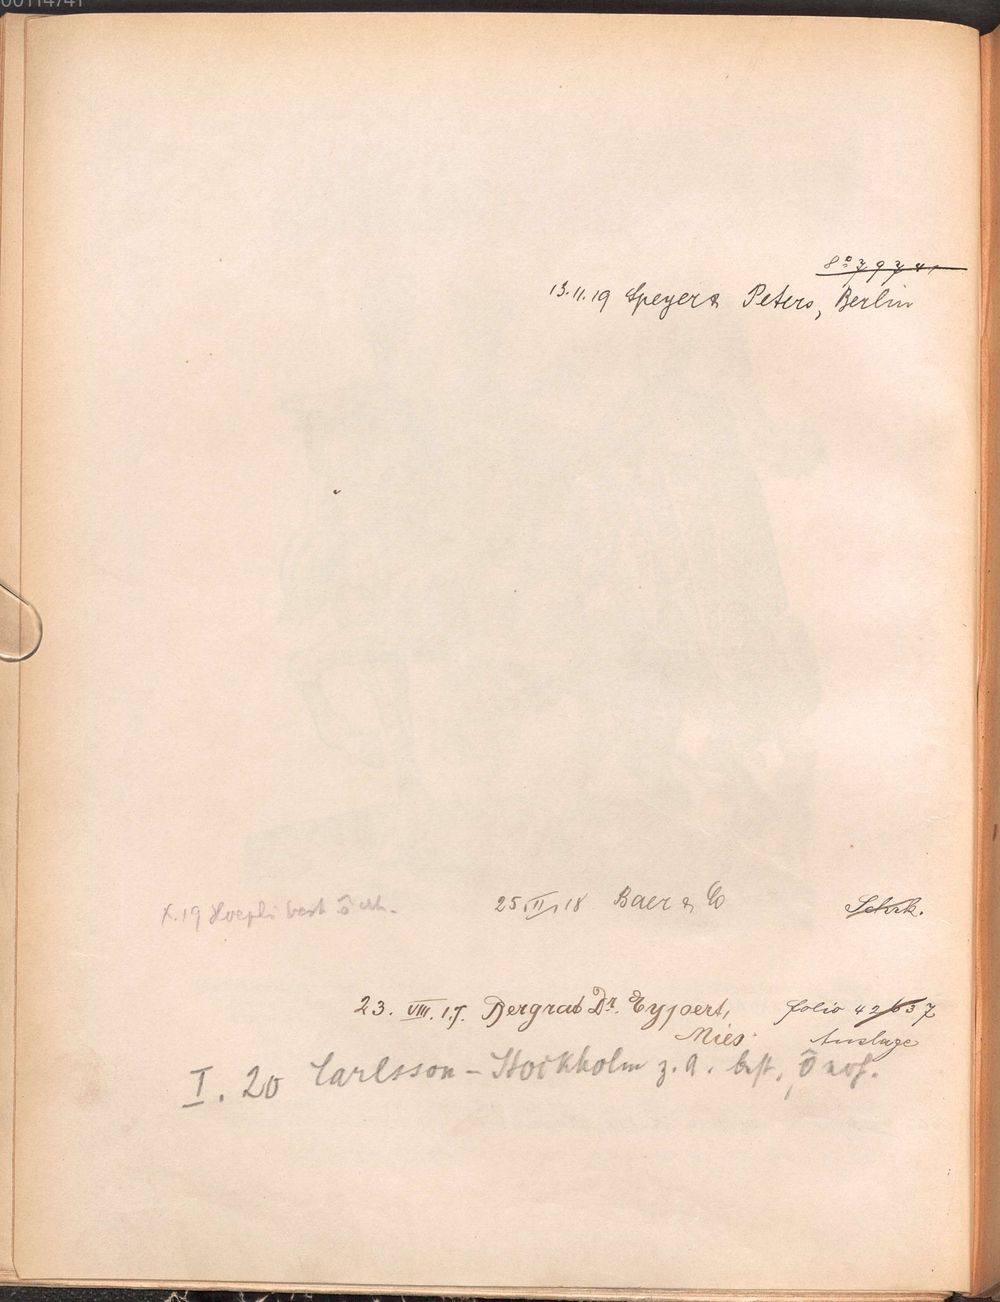 00114741
8° 7974,
13.11.19 Speyer & Peters, Berlin
X.19 Hoepli best ō erh.
25.II.18 Baer & Co Schrk.
23. VIII. 17. Bergrat Dr. Eypert, folio 42/637
Mies Auslage
I. 20 Carlsson - Stockholm z. A. best,